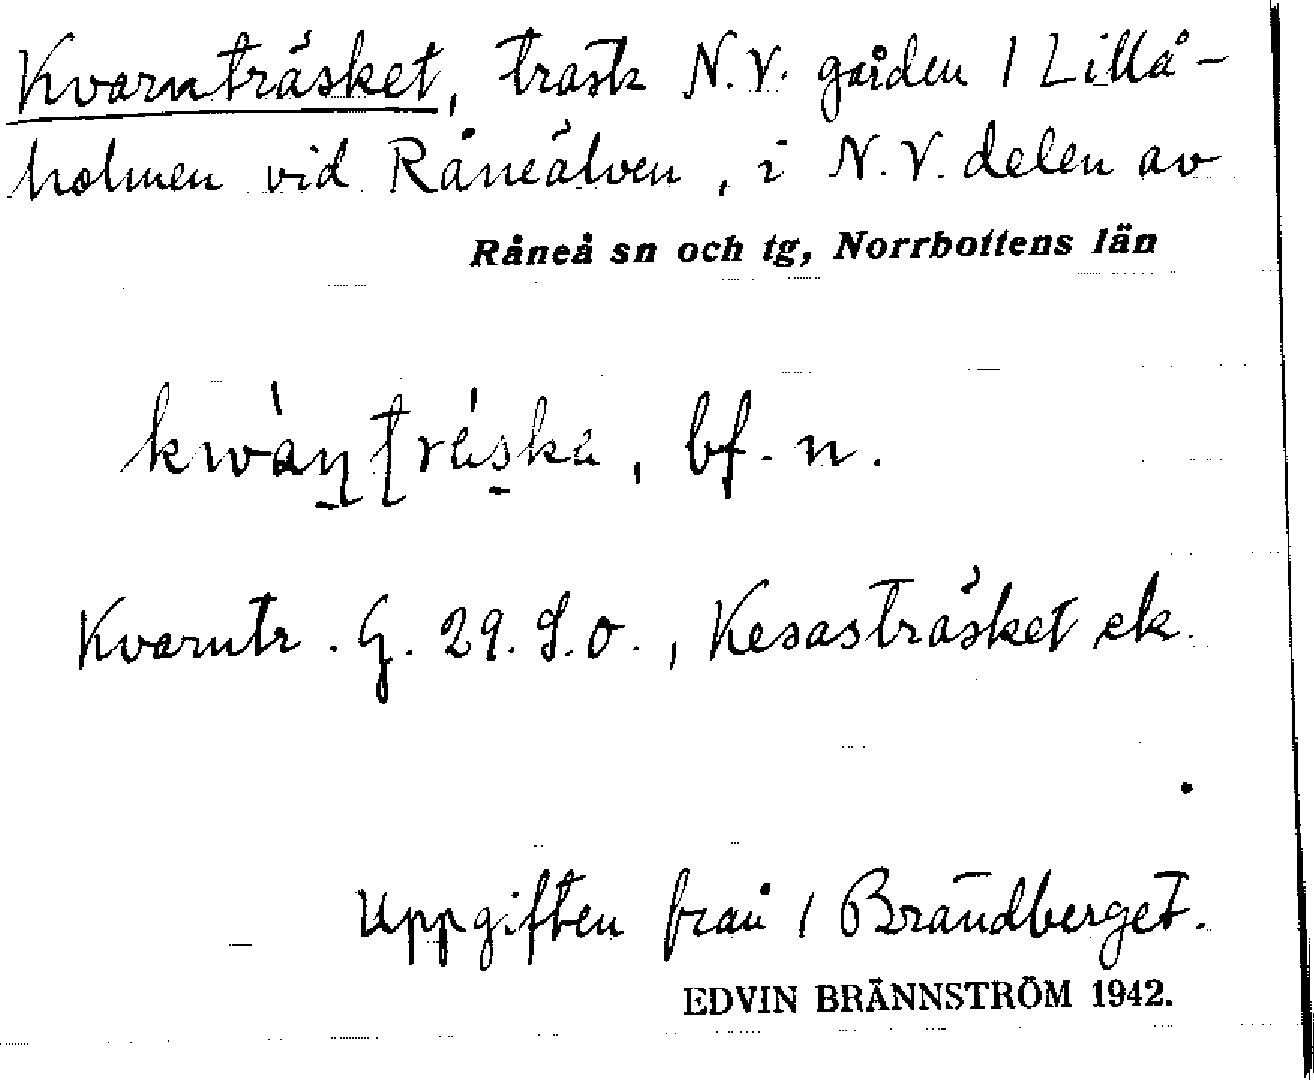 Kvarnträsket, träsk N.V. gården 1 Lillå-
holmen vid Råneälven, i N.V. delen av
Råneå sn och tg, Norrbottens län
bf. n.
Kvarntr. G. 29. S.O., Kesasträsket ek.
Uppgiften från 1 Brändberget.
EDVIN BRÄNNSTRÖM 1942.